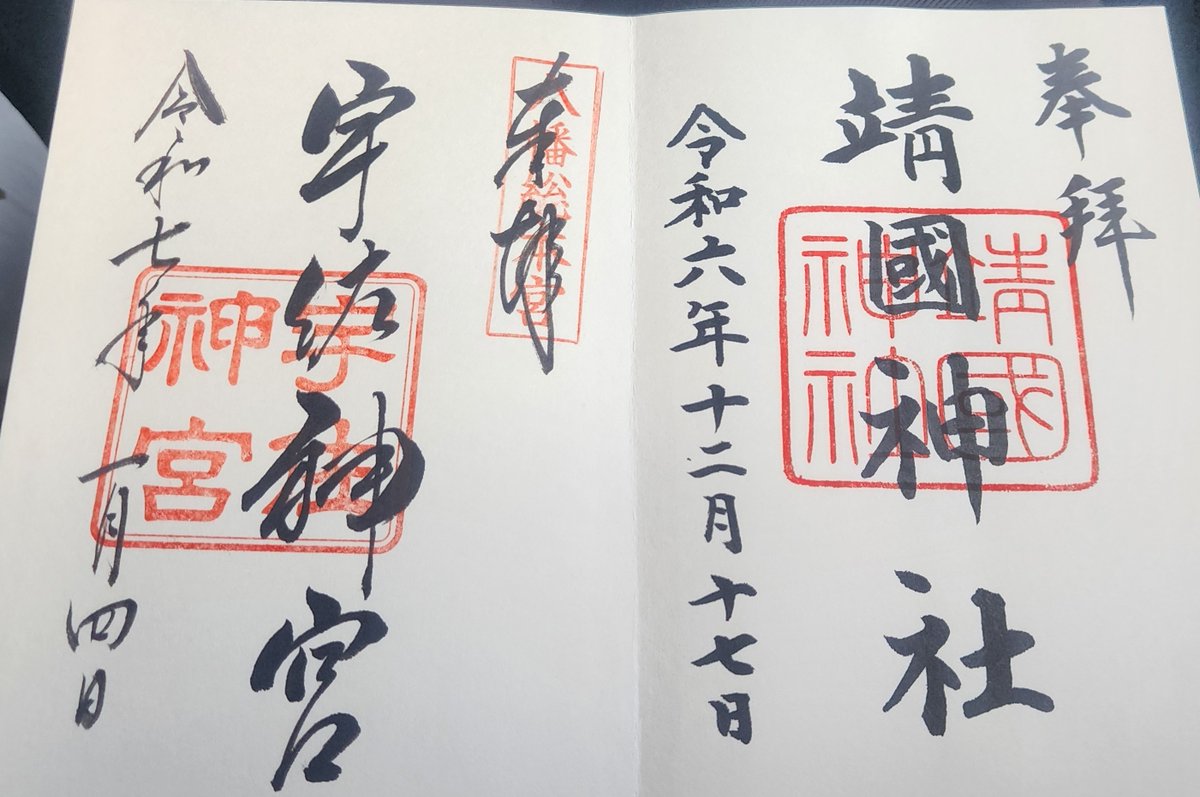 奉拝
靖國神社
靖國神社
令和六年十二月十七日
奉拝
八幡総本宮
宇佐神宮
宇佐神宮
令和七年一月四日